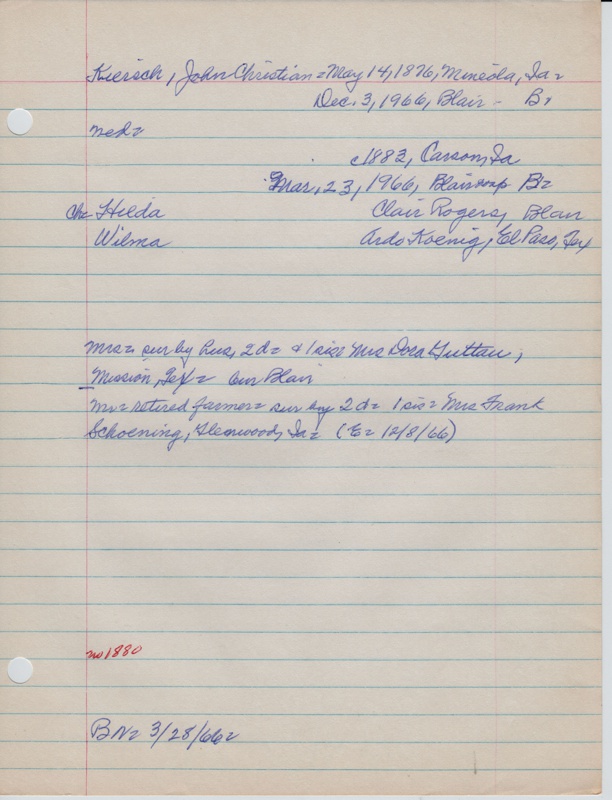 Kiersch, John Christian = May 14, 1876, Mineola, Ia =
Dec. 3, 1966, Blair - B=
med=
c1883, Carson, Ia
Mar. 23, 1966, Blair B=
Ch= Hilda Clair Rogers, Blair
Wilma Ardo Koenig, El Paso, Tex
Mrs= sur by hus, 2d= & 1 sis= Mrs Dora Guttau,
Mission, Tex= bur Blair
Mr= retired farmer= sur by 2d= 1 sis= Mrs Frank
Schoening, Glenwood, Ia= (E= 12/8/66)
no 1880
BN= 3/28/66=